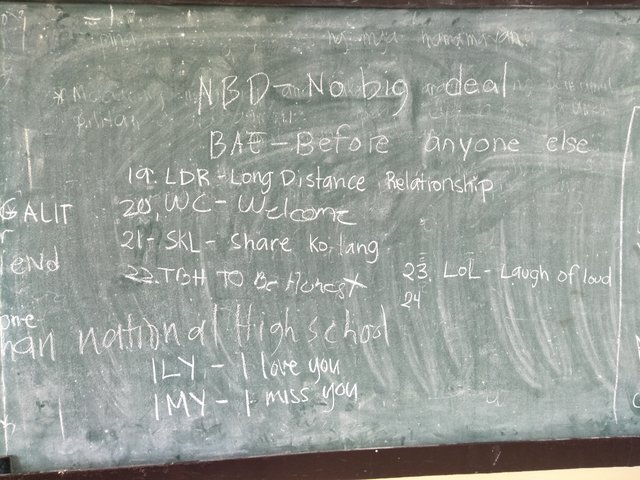 NBD - No big deal
BAE - Before anyone else
19. LDR - Long Distance Relationship
GALIT
20. WC - Welcome
21- SKL - Share ko lang
iend
22. TBH TO Be Honest
23. LoL - Laugh of loud
24
national High school
ILY - I love you
IMY - I miss you